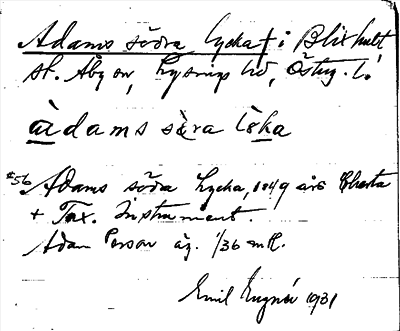 Adams södra lycka † i Blixhult
St. Åby sn, Lysings hd, Östrg. l.
àdams sὸra lὸka
*56 Adams södra Lycka, 1849 års Charta
+ Tax. Instrument.
Adam Person äg. 1/36 mtl.
Emil Eugnér 1931